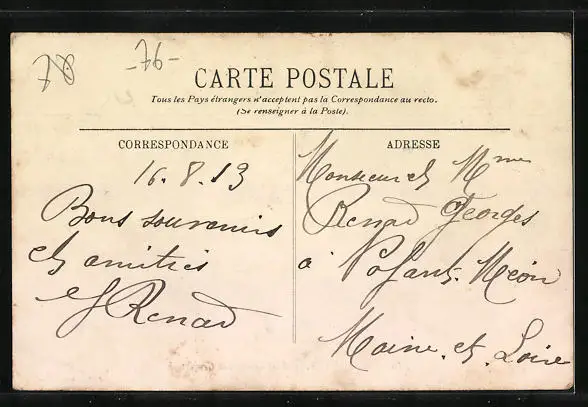 -76-
CARTE POSTALE
Tous les Pays étrangers n'acceptent pas la Correspondance au recto.
(Se renseigner à la Poste).
CORRESPONDANCE
16.8.13
Bons souvenirs
et amitiés
Renard
ADRESSE
Monsieur et Mme
Renard Georges
à Méon
Maine. et. Loire